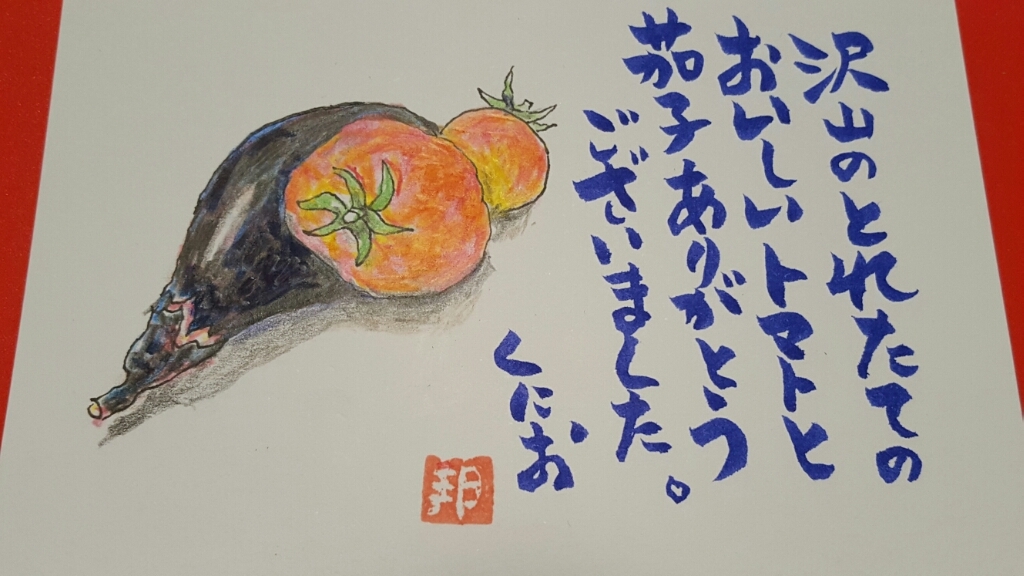 沢山のとれたての
おいしいトマトと
茄子ありがとう
ございました。
くにお
邦